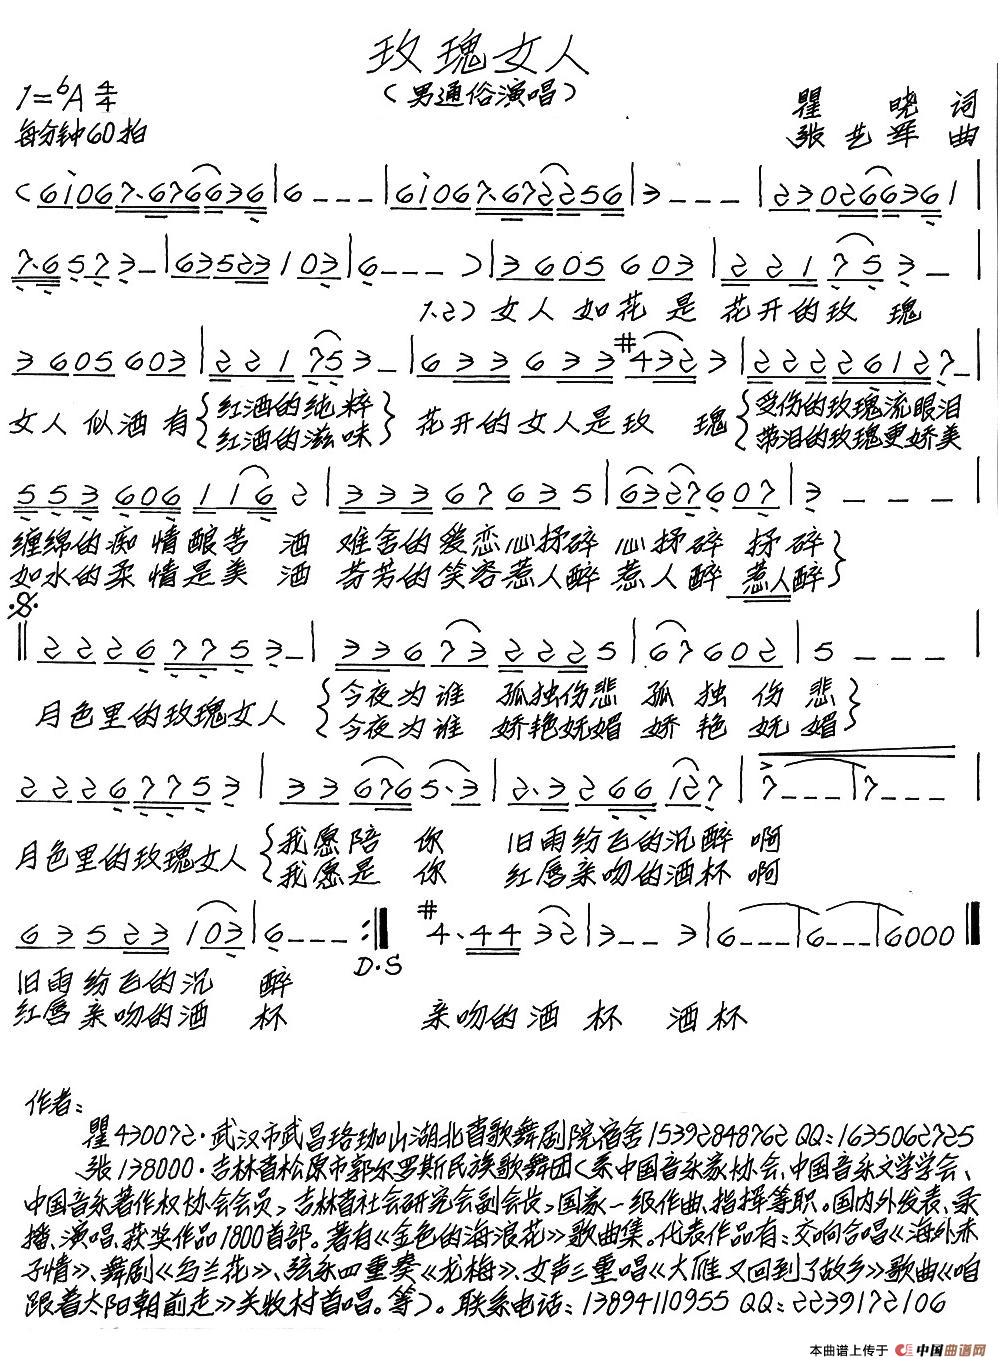 玫瑰女人
（男通俗演唱）
1=♭A 4/4
每分钟60拍
瞿 晓 词
张艺军 曲
(6i067·676636|6---|6i067·672256|3---|230266361|
7·6573-|63523103|6---)|3605603|221753-|
1.2)女人如花是花开的玫瑰
3605603|221753-|633633#4323|22226127-|
女人似酒有{红酒的纯粹}花开的女人是玫瑰{受伤的玫瑰流眼泪
{红酒的滋味}{带泪的玫瑰更娇美
5536061162|33367635|6327607|3---|
缠绵的痴情酿苦酒 难舍的爱恋心揉碎 心揉碎 揉碎}
如水的柔情是美酒 芬芳的笑容惹人醉 惹人醉 惹人醉}
‖22267753-|336732225|67602|5---|
月色里的玫瑰女人{今夜为谁 孤独伤悲 孤独伤悲}
{今夜为谁 娇艳妩媚 娇艳妩媚}
22267753|336765·3|2·3266127|7---|7---|
月色里的玫瑰女人{我愿陪你 旧雨纷飞的沉醉啊
{我愿是你 红唇亲吻的酒杯啊
63523103|6---:‖ #4·4432|3--3|6---|6---|6000‖
D·S
旧雨纷飞的沉醉
红唇亲吻的酒杯 亲吻的酒杯 酒杯
作者：
瞿430072·武汉市武昌珞珈山湖北省歌舞剧院宿舍15392848762 QQ：1635062725
张138000·吉林省松原市郭尔罗斯民族歌舞团（系中国音乐家协会、中国音乐文学学会、
中国音乐著作权协会会员，吉林省社会研究会副会长，国家一级作曲、指挥等职。国内外发表、录
播、演唱、获奖作品1800首部。著有《金色的海浪花》歌曲集。代表作品有：交响合唱《海外赤
子情》、舞剧《乌兰花》、弦乐四重奏《龙梅》、女声三重唱《大雁又回到了故乡》歌曲《咱
跟着太阳朝前走》关牧村首唱。等）。联系电话：13894110955 QQ：2239172106
本曲谱上传于 中国曲谱网